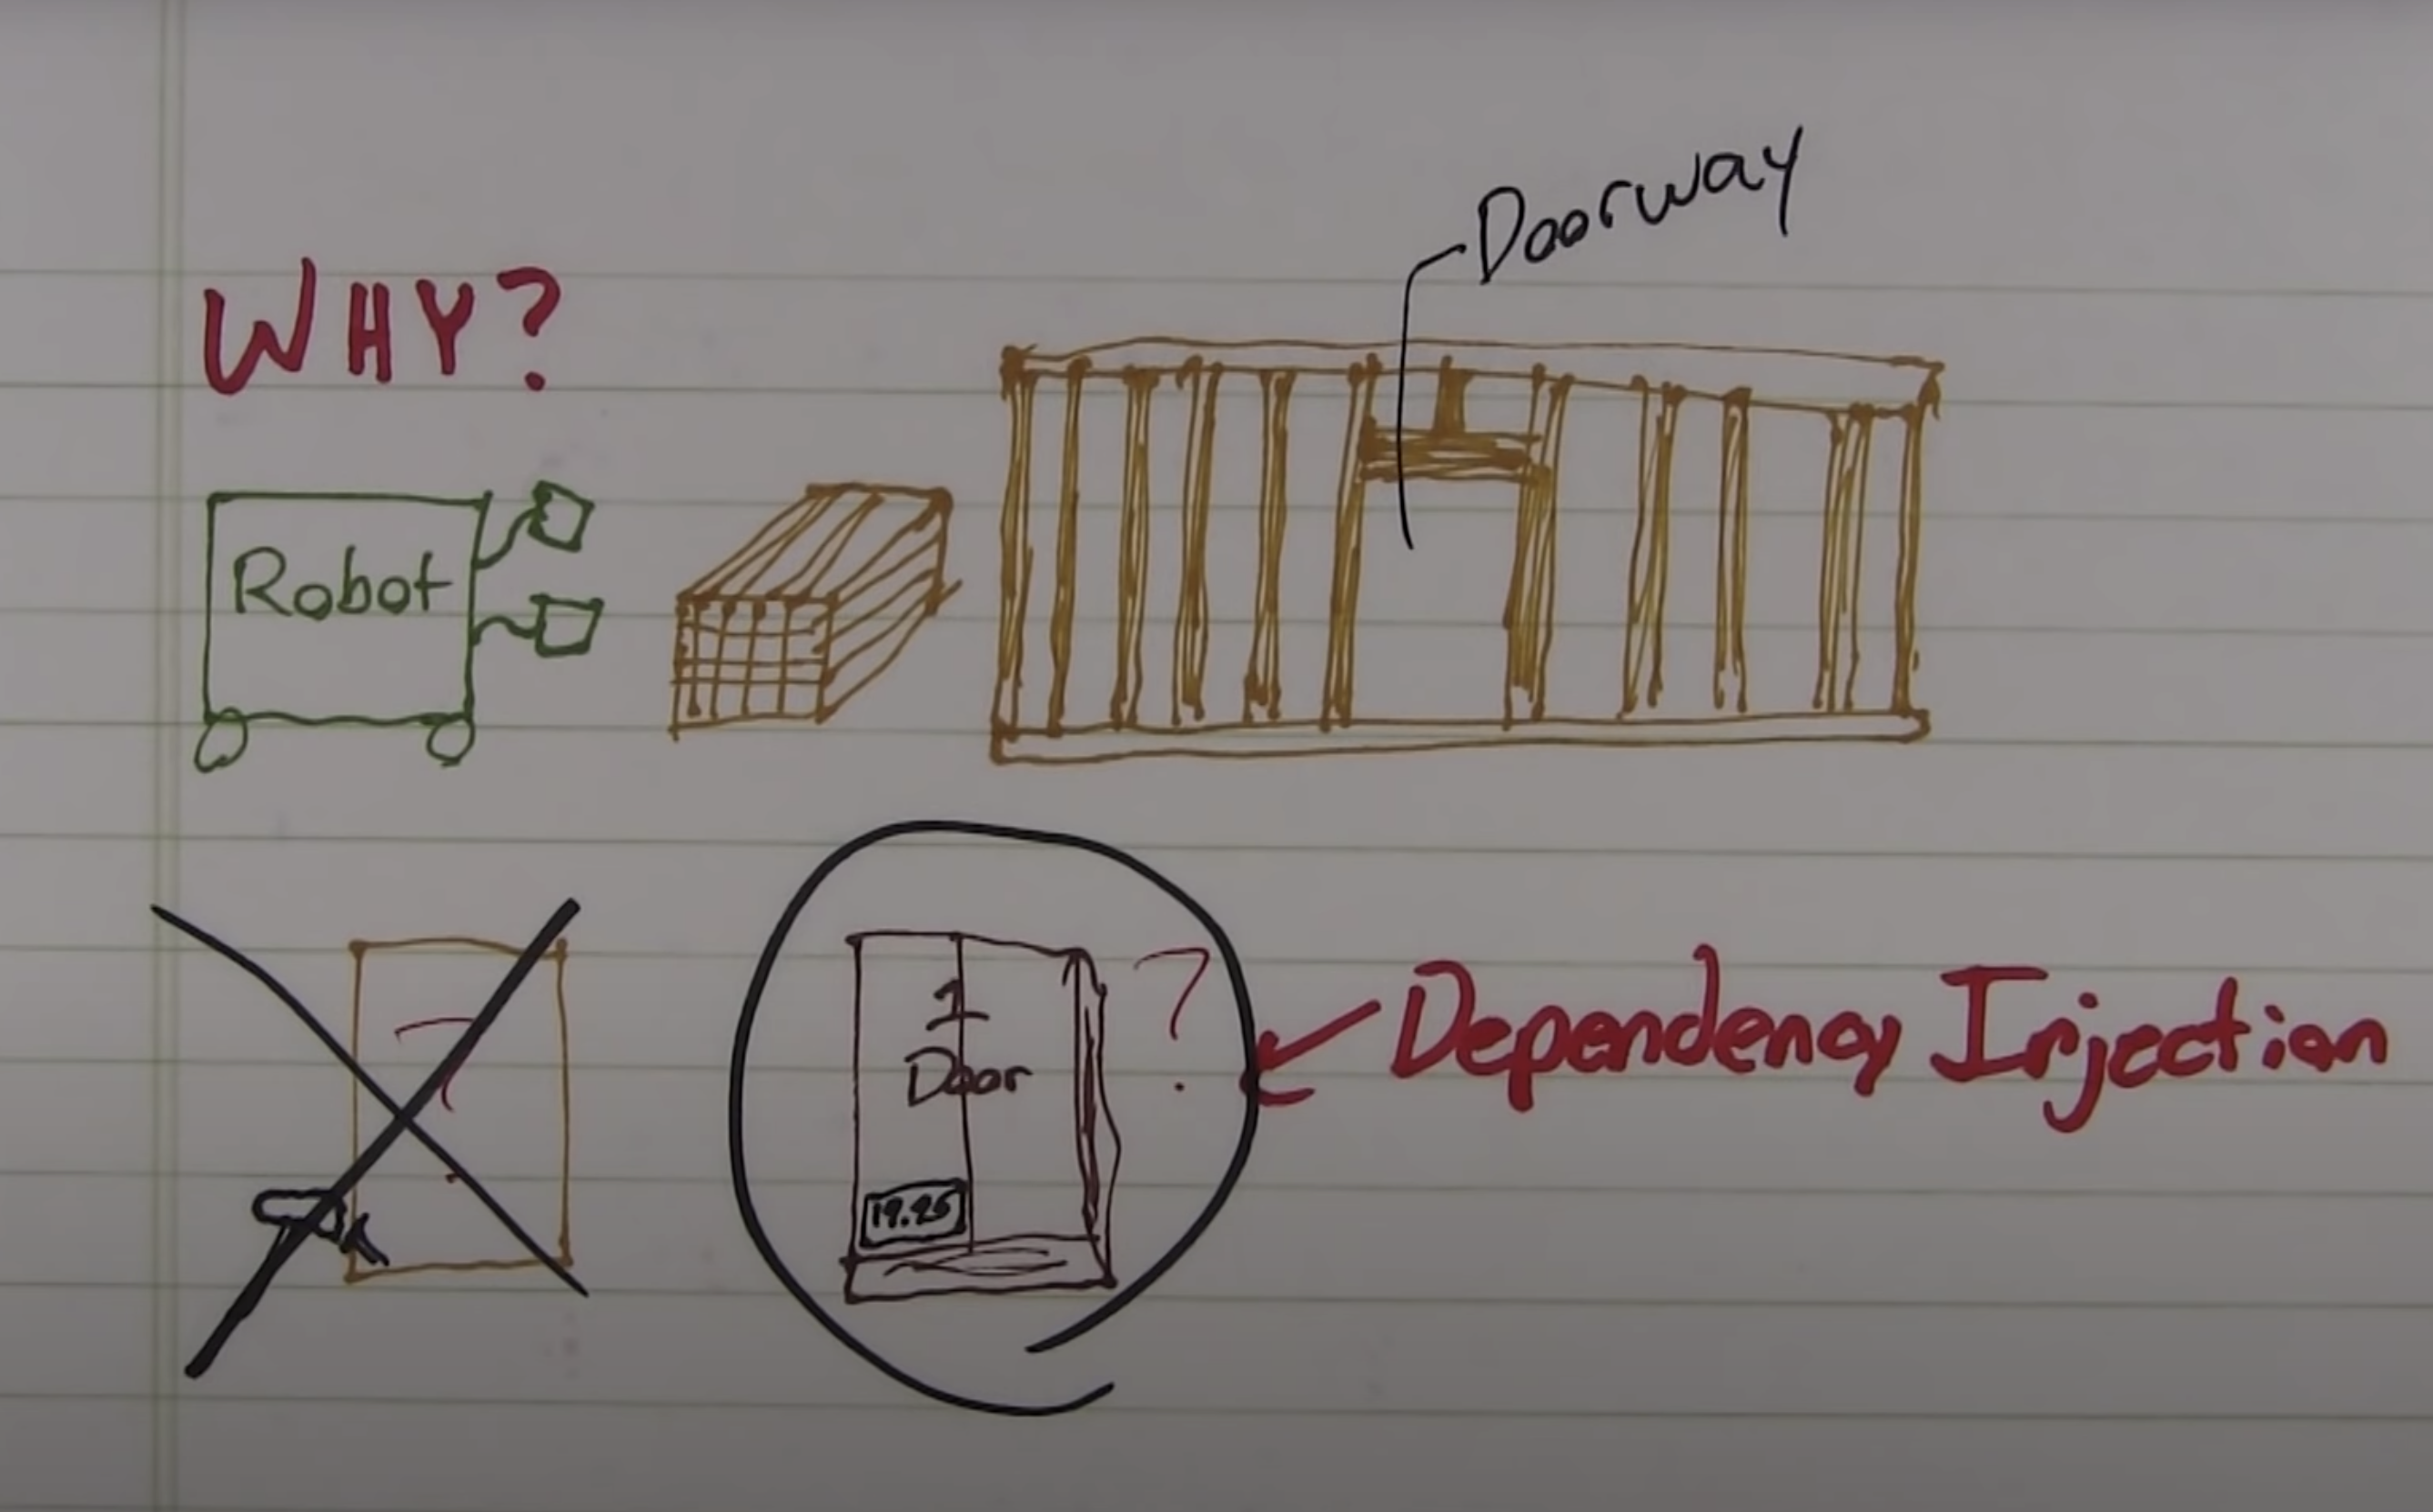 Doorway
WHY?
Robot
?
1
Door
?
19.25
Dependency Injection